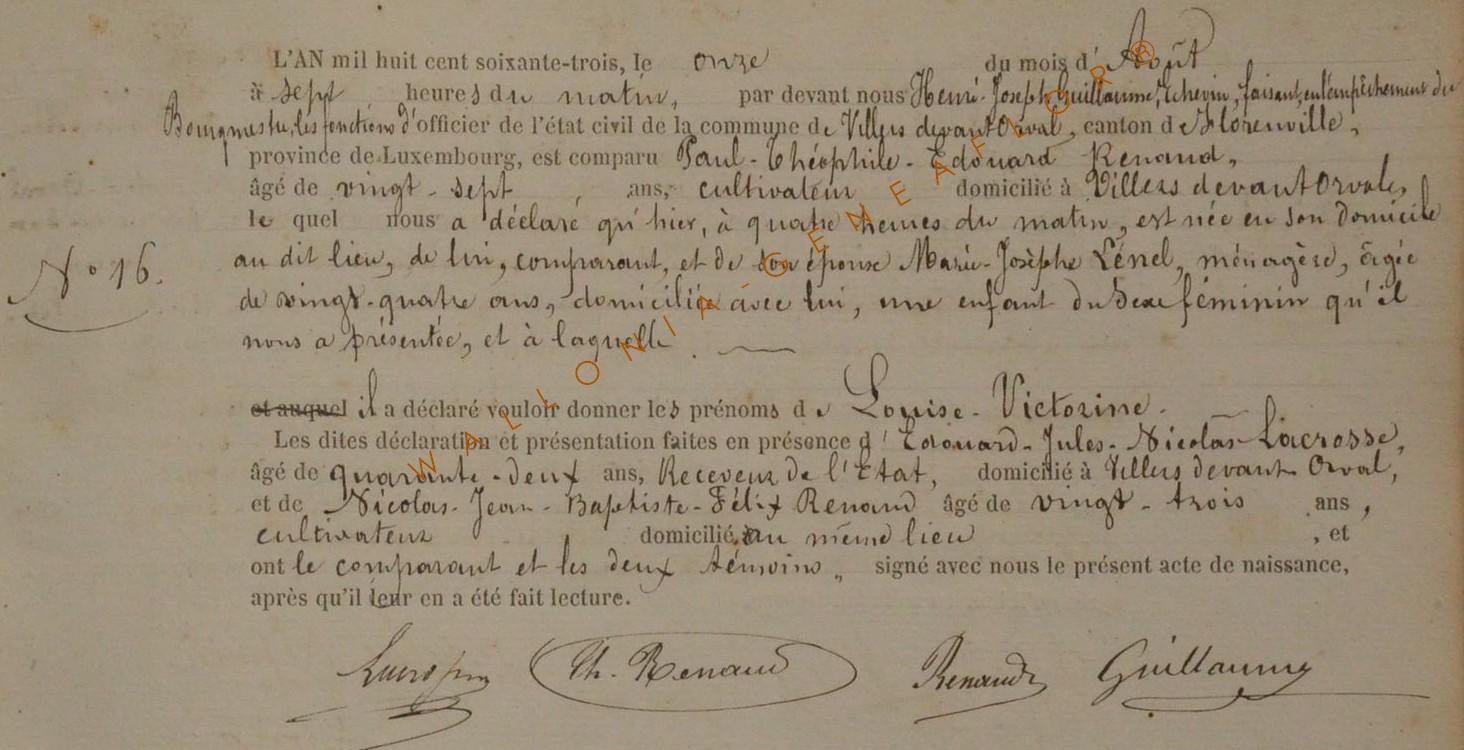 L'AN mil huit cent soixante-trois, le onze du mois d' Août
à sept heures du matin, par devant nous Henri-Joseph Guillaume, Echevin, faisant, en l'empêchement du
Bourgmestre, les fonctions d'officier de l'état civil de la commune de Villers devant Orval, canton de Florenville,
province de Luxembourg, est comparu Paul-Théophile-Edouard Renaud,
âgé de vingt-sept ans, cultivateur domicilié à Villers devant Orval,
le quel nous a déclaré qu'hier, à quatre heures du matin, est née en son domicile
N° 16.
au dit lieu, de lui, comparant, et de son épouse Marie-Josèphe Lénel, ménagère, âgée
de vingt-quatre ans, domiciliée avec lui, une enfant du sexe féminin qu'il
nous a présentée, et à laquelle
et auquel il a déclaré vouloir donner les prénoms de Louise-Victorine.
Les dites déclaration et présentation faites en présence d' Edouard-Jules-Nicolas Lacrosse,
âgé de quarante-deux ans, Receveur de l'Etat, domicilié à Villers devant Orval,
et de Nicolas-Jean-Baptiste-Félix Renaud âgé de vingt-trois ans,
cultivateur domicilié au même lieu, et
ont le comparant et les deux témoins, signé avec nous le présent acte de naissance,
après qu'il leur en a été fait lecture.
Lacrosse Th. Renaud Renaud Guillaume
WALLONIA-GENEAFLOR®